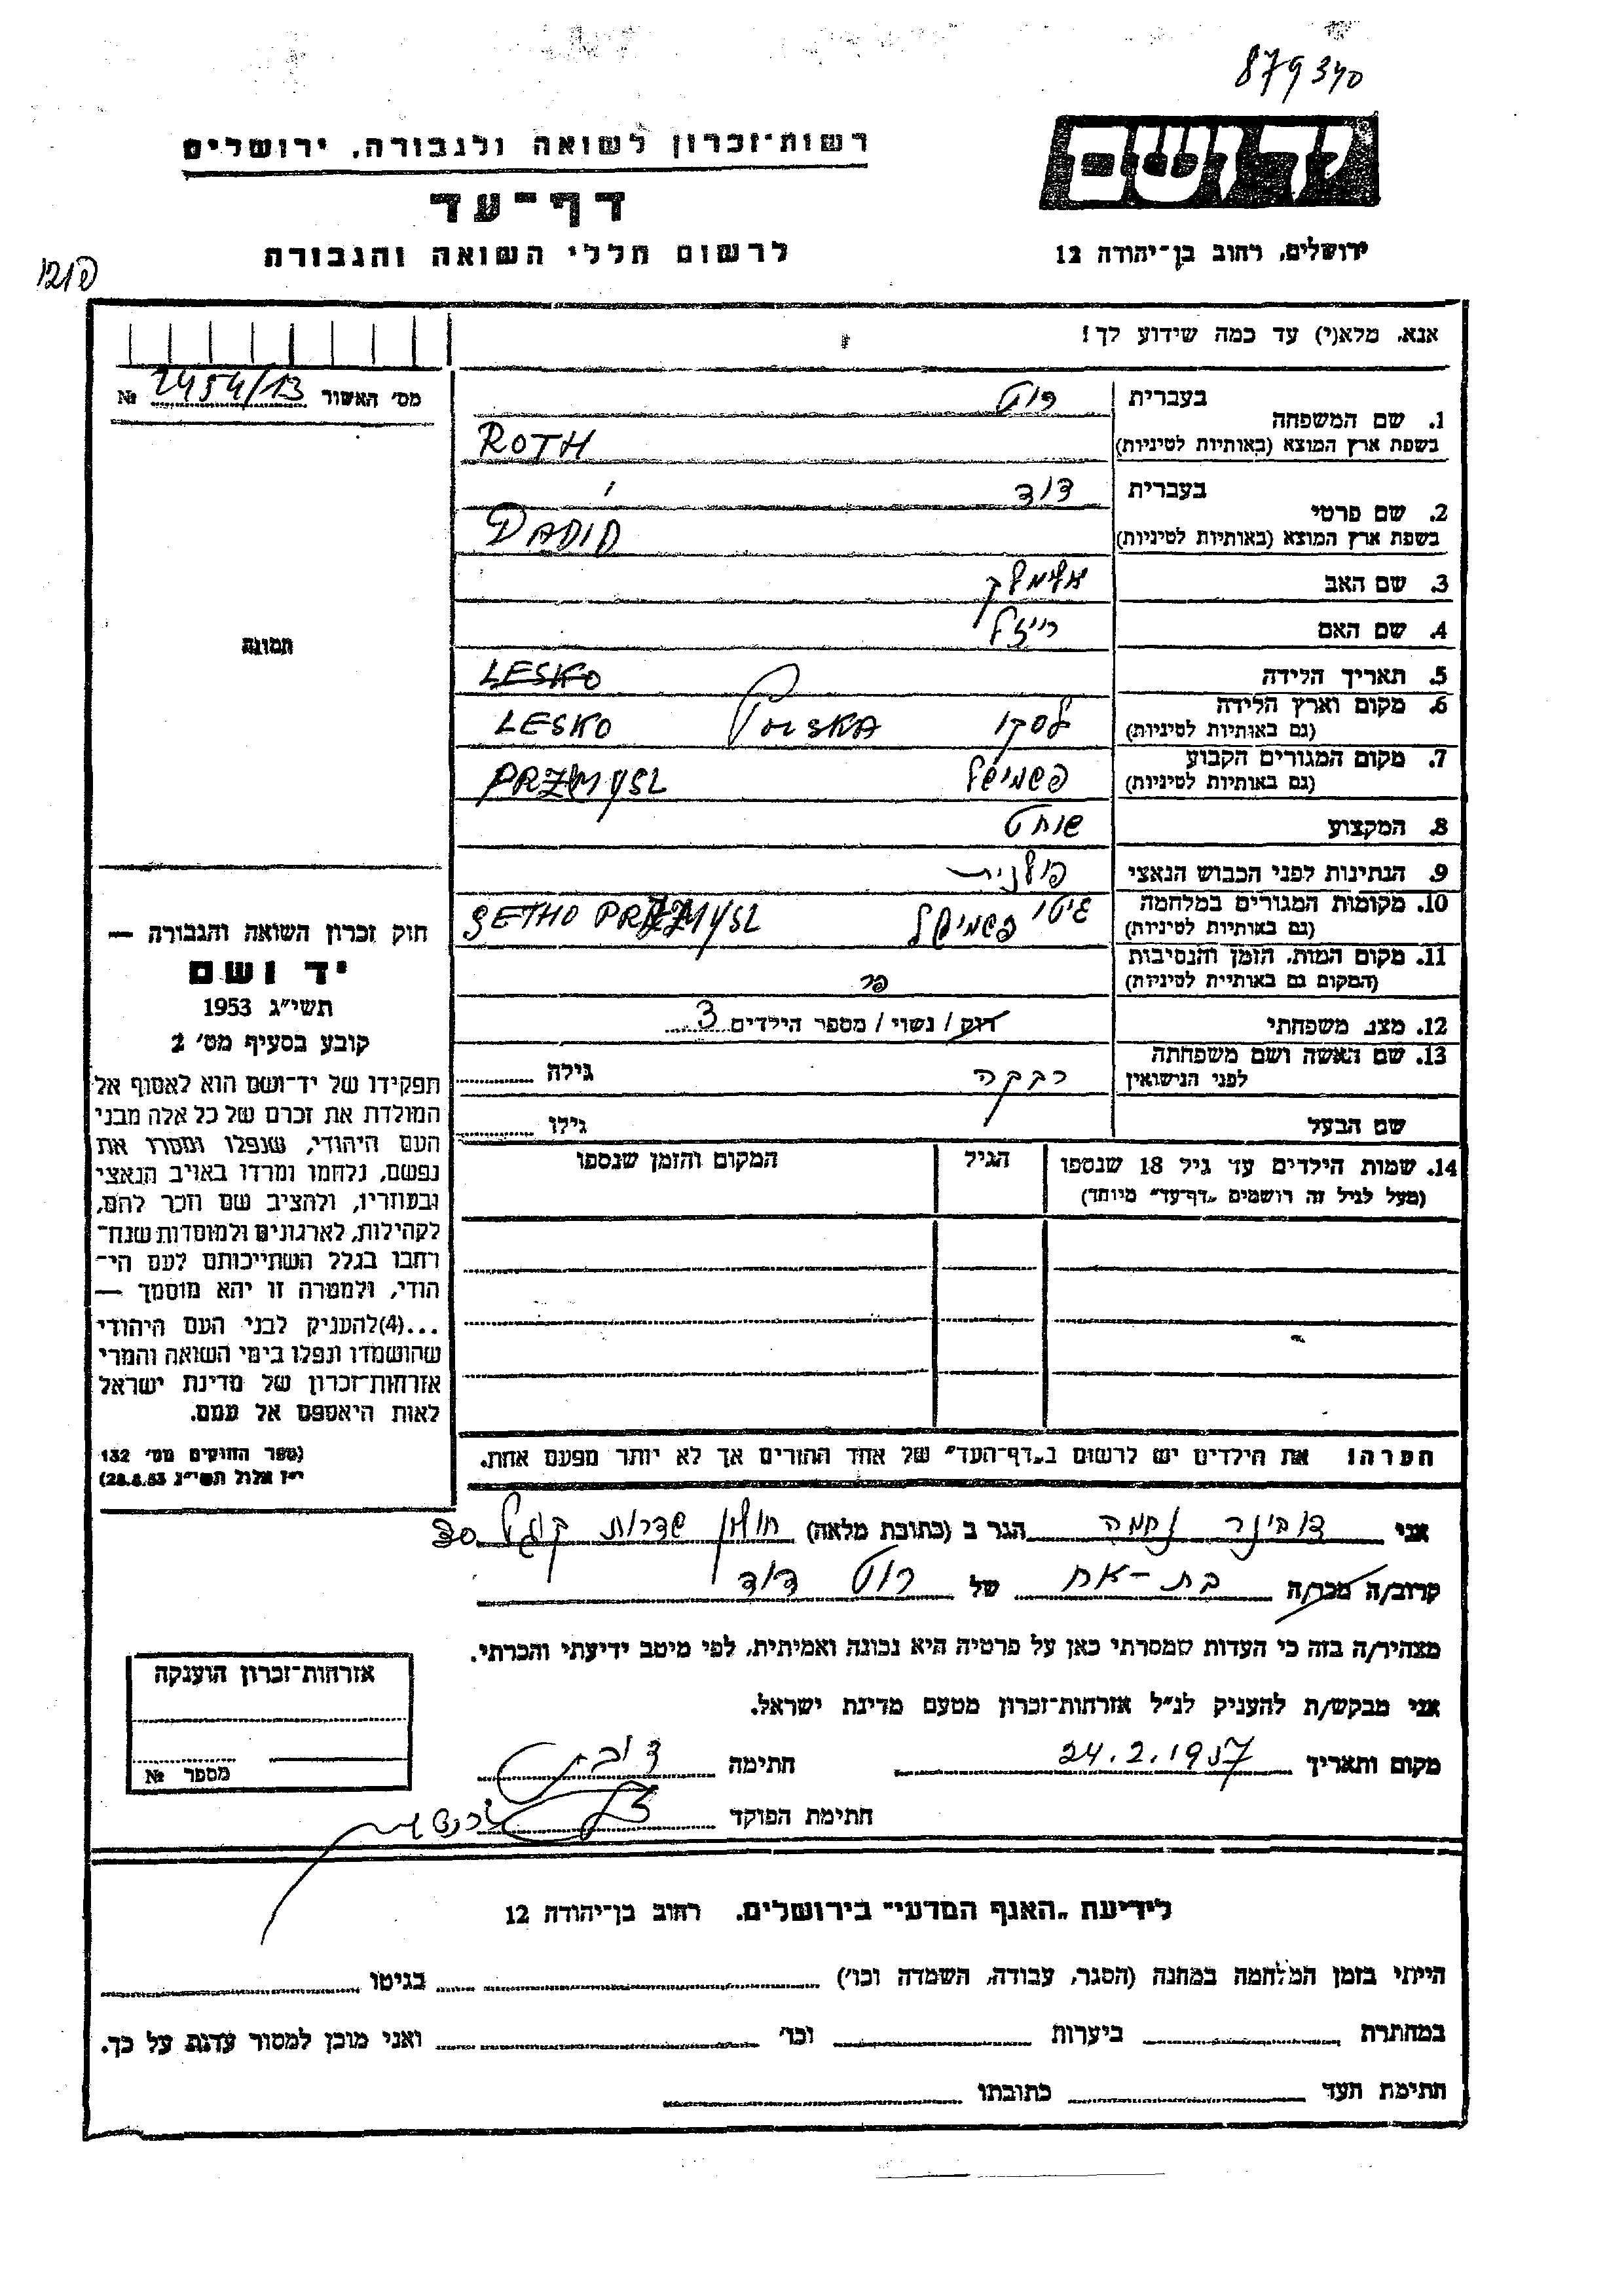 879340
יד ושם
ירושלים, רחוב בן־יהודה 12
רשות־זכרון לשואה ולגבורה, ירושלים
דף־עד
לרשום חללי השואה והגבורה
אנא, מלא(י) עד כמה שידוע לך!
מס׳ האשור 2454/13 №
תמונה
1. שם המשפחה
בעברית רוט
בשפת ארץ המוצא (באותיות לטיניות) ROTH
2. שם פרטי
בעברית דוד
בשפת ארץ המוצא (באותיות לטיניות) DADID
3. שם האב אלימלך
4. שם האם רייזל
5. תאריך הלידה LESKO
6. מקום וארץ הלידה לסקו POLSKA LESKO
(גם באותיות לטיניות)
7. מקום המגורים הקבוע פשמישל PRZMYSL
(גם באותיות לטיניות)
8. המקצוע שוחט
9. הנתינות לפני הכבוש הנאצי פולנית
10. מקומות המגורים במלחמה גיטו פשמישל GETHO PRZMYSL
(גם באותיות לטיניות)
11. מקום המות, הזמן והנסיבות
(המקום גם באותיות לטיניות)
12. מצב משפחתי רוק / נשוי / מספר הילדים 3
13. שם האשה ושם משפחתה
לפני הנישואין רבקה גילה
שם הבעל גילו
14. שמות הילדים עד גיל 18 שנספו הגיל המקום והזמן שנספו
(מעל לגיל זה רושמים „דף־עד״ מיוחד)
הערה! את הילדים יש לרשום ב„דף־העד״ של אחד ההורים אך לא יותר מפעם אחת.
חוק זכרון השואה והגבורה —
יד ושם
תשי״ג 1953
קובע בסעיף מס׳ 2
תפקידו של יד־ושם הוא לאסוף אל
המולדת את זכרם של כל אלה מבני
העם היהודי, שנפלו ומסרו את
נפשם, נלחמו ומרדו באויב הנאצי
ובעוזריו, ולהציב שם וזכר להם,
לקהילות, לארגונים ולמוסדות שנח־
רבו בגלל השתייכותם לעם הי־
הודי, ולמטרה זו יהא מוסמך —
...(4)להעניק לבני העם היהודי
שהושמדו ונפלו בימי השואה והמרי
אזרחות־זכרון של מדינת ישראל
לאות היאספם אל עמם.
(ספר החוקים מס׳ 132
י״ז אלול תשי״ג 28.8.53)
אני דובינר נחמה הגר ב (כתובת מלאה) חולון שדרות קוגל
קרוב/ה מכר/ה בת-אח של רוט דוד
מצהיר/ה בזה כי העדות שמסרתי כאן על פרטיה היא נכונה ואמיתית, לפי מיטב ידיעתי והכרתי.
אני מבקש/ת להעניק לנ״ל אזרחות־זכרון מטעם מדינת ישראל.
מקום ותאריך 24.2.1957 חתימה
חתימת הפוקד
אזרחות־זכרון הוענקה
מספר №
לידיעת „האגף המדעי״ בירושלים, רחוב בן־יהודה 12
הייתי בזמן המלחמה במחנה (הסגר, עבודה, השמדה וכו׳) בגיטו
במחתרת ביערות וכו׳ ואני מוכן למסור עדות על כך.
חתימת העד כתובתו